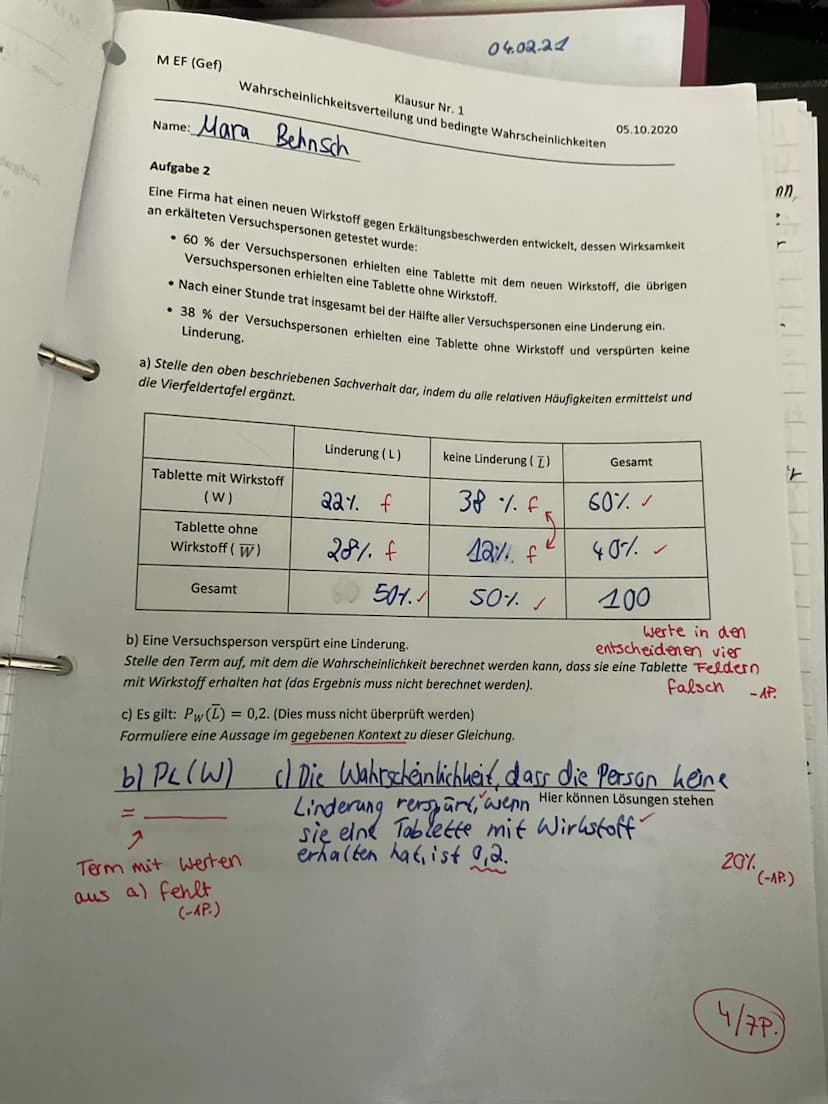 04.02.21
M EF (Gef)
Klausur Nr. 1
05.10.2020
Wahrscheinlichkeitsverteilung und bedingte Wahrscheinlichkeiten
Name: Mara Behnsch
Aufgabe 2
Eine Firma hat einen neuen Wirkstoff gegen Erkältungsbeschwerden entwickelt, dessen Wirksamkeit
an erkälteten Versuchspersonen getestet wurde:
• 60 % der Versuchspersonen erhielten eine Tablette mit dem neuen Wirkstoff, die übrigen
Versuchspersonen erhielten eine Tablette ohne Wirkstoff.
• Nach einer Stunde trat insgesamt bei der Hälfte aller Versuchspersonen eine Linderung ein.
• 38 % der Versuchspersonen erhielten eine Tablette ohne Wirkstoff und verspürten keine
Linderung.
a) Stelle den oben beschriebenen Sachverhalt dar, indem du alle relativen Häufigkeiten ermittelst und
die Vierfeldertafel ergänzt.
Linderung ( L ) keine Linderung ( L̅ ) Gesamt
Tablette mit Wirkstoff
( W ) 22% f 38 % f 60% ✓
Tablette ohne
Wirkstoff ( W̅ ) 28% f 12% f 40% ✓
Gesamt 50% ✓ 50% ✓ 100
Werte in den
entscheidenen vier
Feldern
falsch -1P.
b) Eine Versuchsperson verspürt eine Linderung.
Stelle den Term auf, mit dem die Wahrscheinlichkeit berechnet werden kann, dass sie eine Tablette
mit Wirkstoff erhalten hat (das Ergebnis muss nicht berechnet werden).
c) Es gilt: P_W(L̅) = 0,2. (Dies muss nicht überprüft werden)
Formuliere eine Aussage im gegebenen Kontext zu dieser Gleichung.
b) P_L(W)
= ______
Term mit Werten
aus a) fehlt
(-1P.)
c) Die Wahrscheinlichkeit, dass die Person keine
Linderung verspürt, wenn
Hier können Lösungen stehen
sie eine Tablette mit Wirkstoff ✓
erhalten hat, ist 0,2.
20%
(-1P.)
4/7P.
nn,